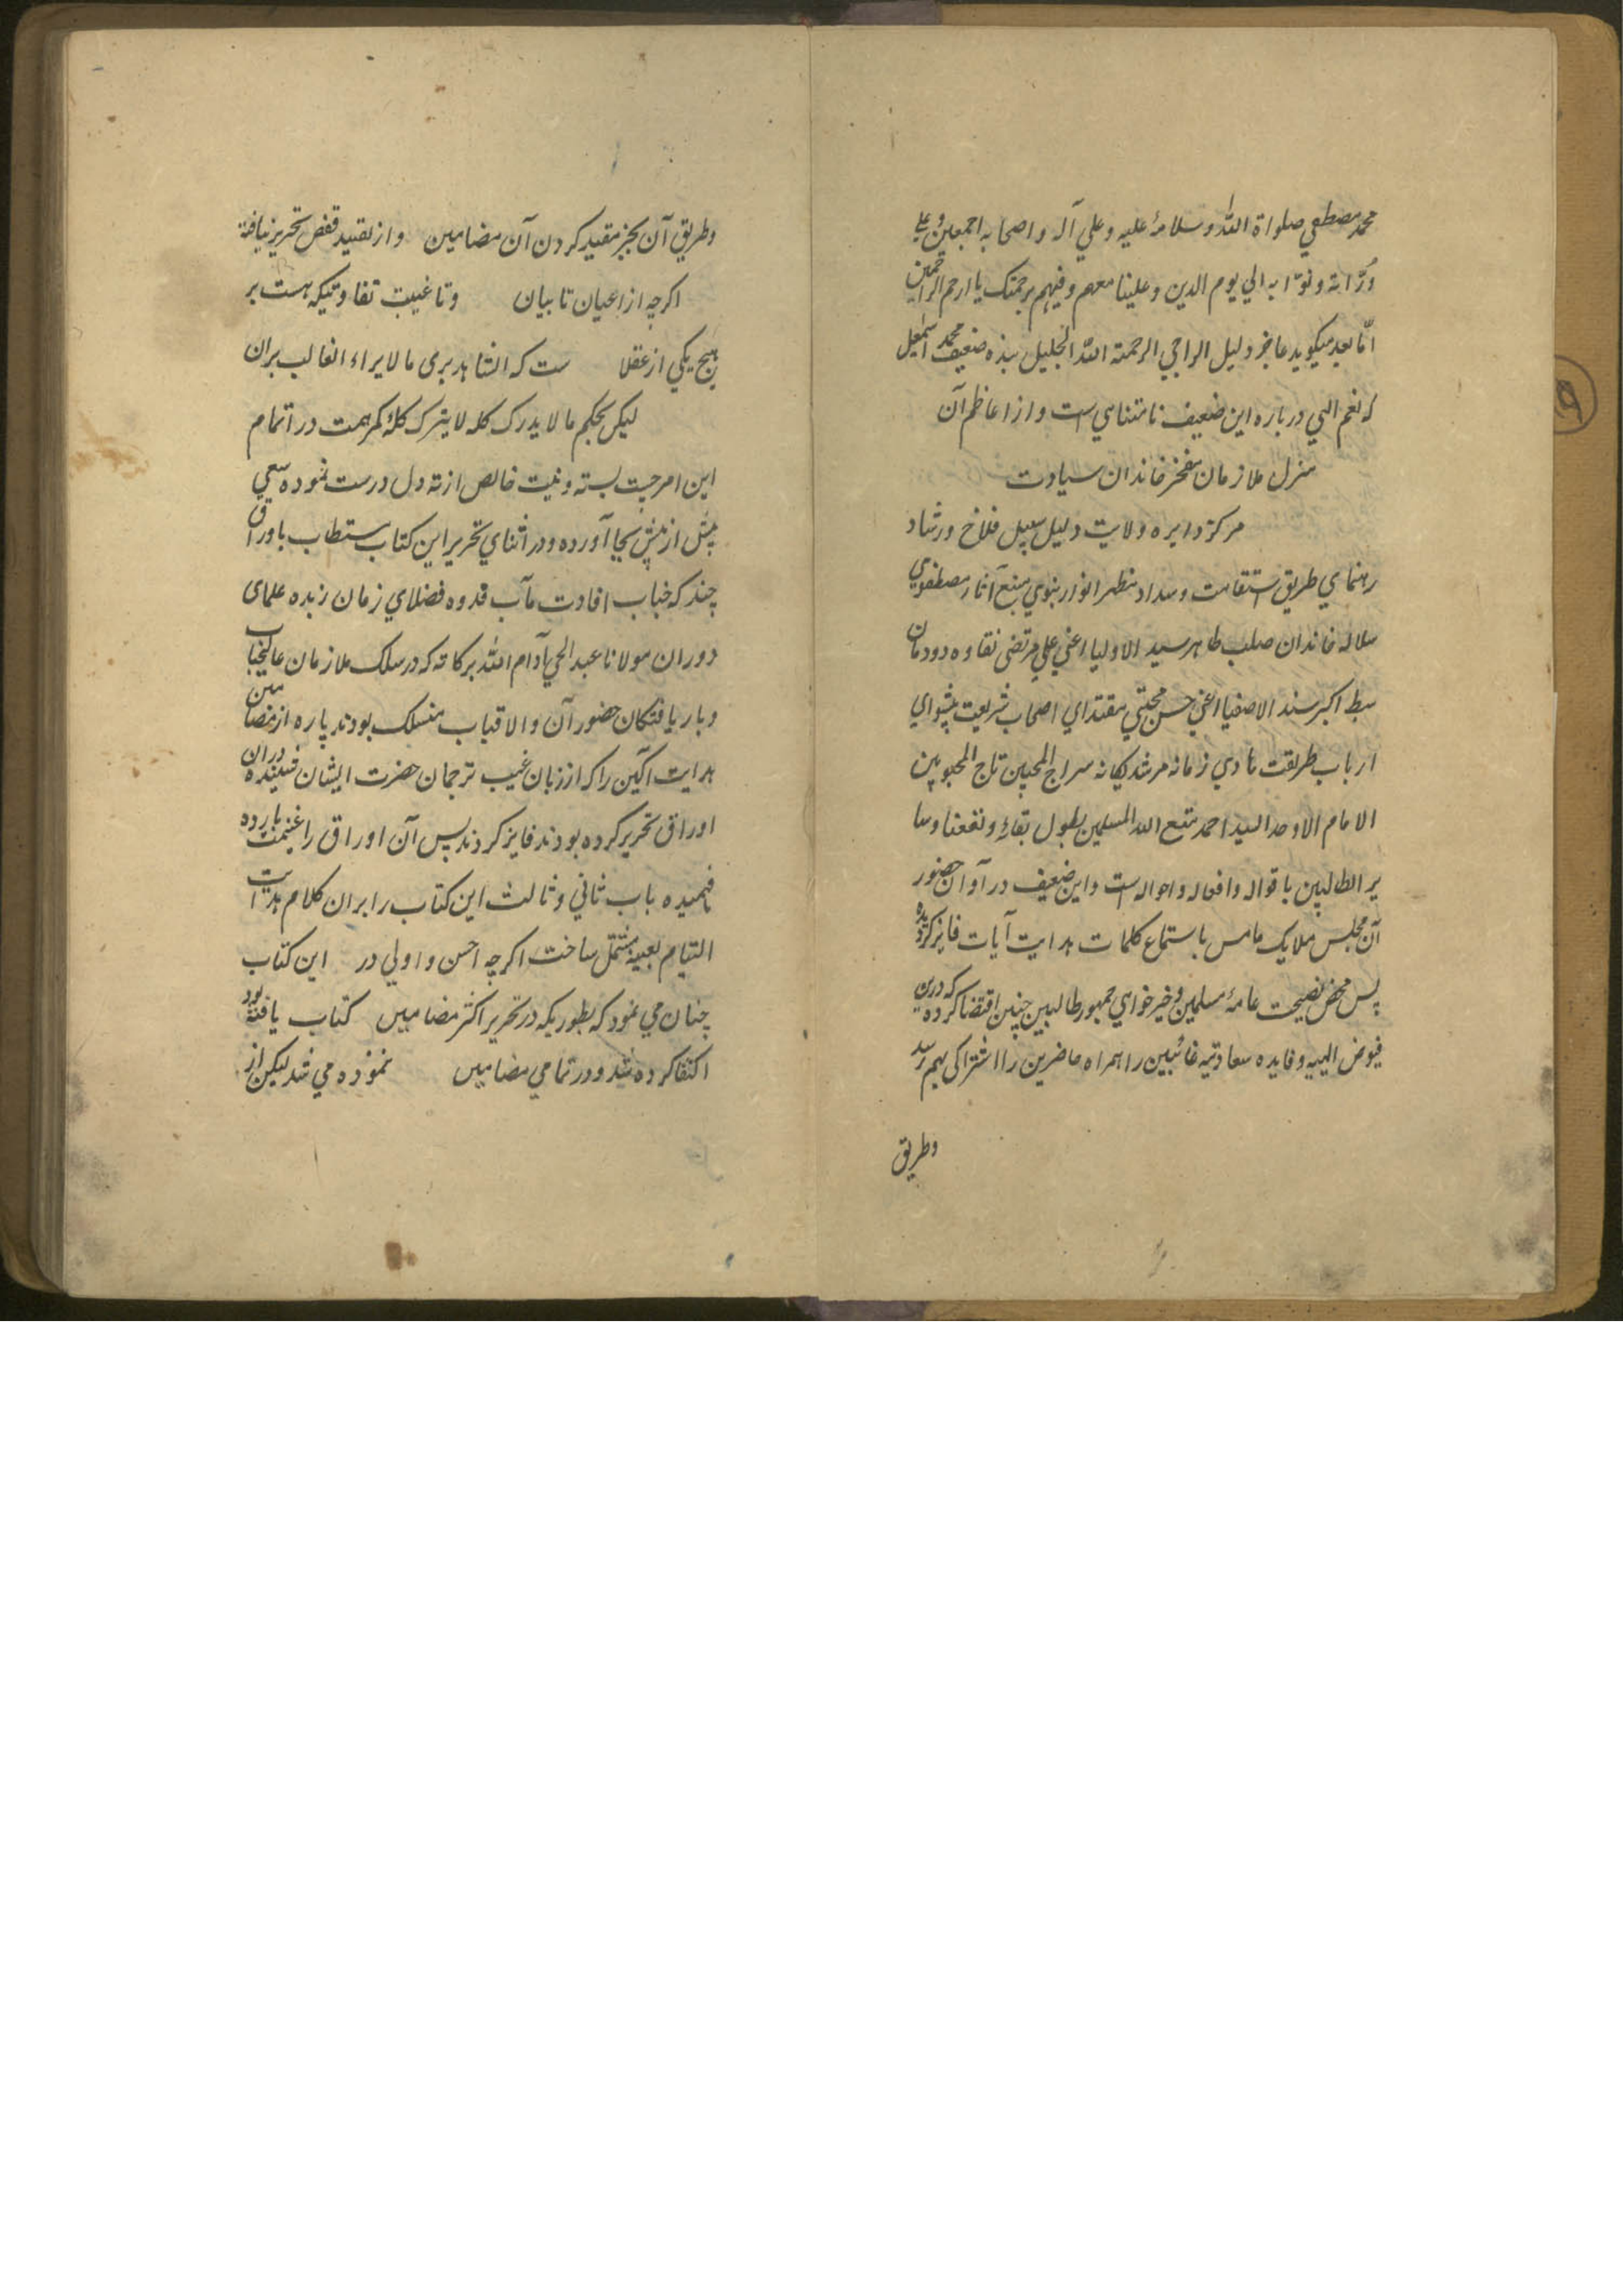 محمد مصطفي صلواة الله وسلامهٔ عليه وعلي آله واصحابه اجمعين وعلي
ورّاثه ونوّابه الي يوم الدين وعلينا معهم وفيهم برحمتك يا ارحم الراحمين
امّا بعد ميكويد عاجز وليل الراجي الرحمته الله الجليل بنده ضعيف محمد اسمعيل
كه نعم الهي درباره اين ضعيف نامتناهي است و از اعاظم آن
منزل ملازمان مفخر خاندان سيادت
مركز دايره ولايت دليل سبيل فلاح ورشاد
رهنماي طريق استقامت وسداد مظهر انوار نبوي منبع آثار مصطفوي
سلاله خاندان صلب طاهر سيد الاوليا اعني علي مرتضى نقاوه دودمان
سبط اكبر سند الاصفيا اعني حسن مجتبي مقتداي اصحاب شريعت پيشواي
ارباب طريقت هادي زمانه مرشد يكانه سراج المحبين تاج المحبوبين
الامام الاوحد السيد احمد متع الله المسلمين بطول بقائه ونفعنا وسا
ير الطالبين باقواله وافعاله واحواله است واين ضعيف در آوان حضور
آن مجلس ملايك مامس باستماع كلمات هدايت آيات فايز كرديده
پس محض نصيحت عامهٔ مسلمين وخير خواهي جمهور طالبين چنين اقتضا كرده كه درين
فيوض الهيه وفايده سعادتيه غائبين را همراه حاضرين را اشتراكي بهم رسد
وطريق
وطريق آن بجز مقيد كردن آن مضامين و از تقييد قفص تحرير نيافته
اكرچه از اعيان تا بيان وتا غيبت تفاوتيكه هست بر
هيچ يكي از عقلا ست كه الشاهد يرى ما لا يراه الغائب بران
ليكن بحكم ما لا يدرك كله لا يترك كلهٔ كمر همت در اتمام
اين امر چست بسته ونيت خالص از ته دل درست نموده سعي
بيش از پيش بجا آورده ودر اثناي تحرير اين كتاب مستطاب باوراق
چند كه جناب افادت مآب قدوه فضلاي زمان زبده علماى
دوران مولانا عبد الحي آدام الله بركاته كه در سلك ملازمان عاليجناب
وباريافتكان حضور آن والاقباب منسلك بودند پاره از مضامين
هدايت اكين را كه از زبان غيب ترجمان حضرت ايشان شنيده دران
اوراق تحرير كرده بودند فايز كردند پس آن اوراق را غنيمت بارده
فهميده باب ثاني وثالث اين كتاب را بران كلام هدايت
التيام بعينه مشتمل ساخت اكرچه احسن واولي در اين كتاب
چنان مي نمود كه بطوريكه در تحرير اكثر مضامين كتاب يافته بود
اكتفا كرده شد ودر تمامي مضامين نموده مي شد ليكن از